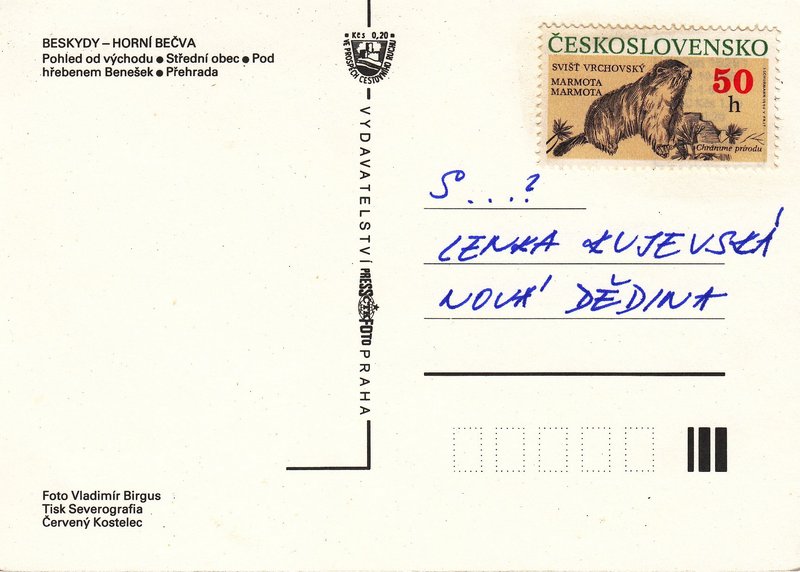 BESKYDY – HORNÍ BEČVA
Pohled od východu ● Střední obec ● Pod
hřebenem Benešek ● Přehrada
Kčs 0,20
VE PROSPĚCH CESTOVNÍHO RUCHU
VYDAVATELSTVÍ PRESSFOTO PRAHA
ČTK
ČESKOSLOVENSKO
SVIŠŤ VRCHOVSKÝ
MARMOTA
MARMOTA
50
h
Chráníme přírodu
S...?
LENKA KUJEVSKÁ
NOVÁ DĚDINA
Foto Vladimír Birgus
Tisk Severografia
Červený Kostelec